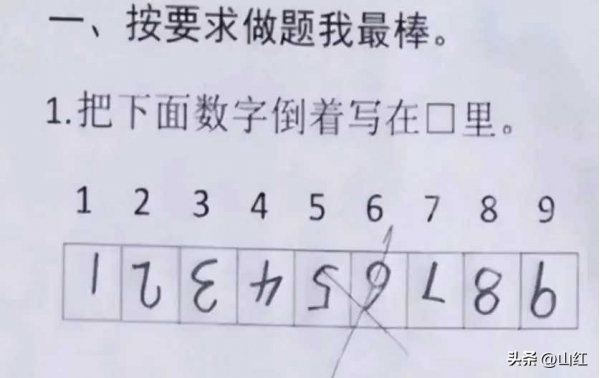 一、按要求做题我最棒。
1.把下面数字倒着写在□里。
1 2 3 4 5 6 7 8 9
1 2 3 4 5 6 7 8 9
头条 @山红